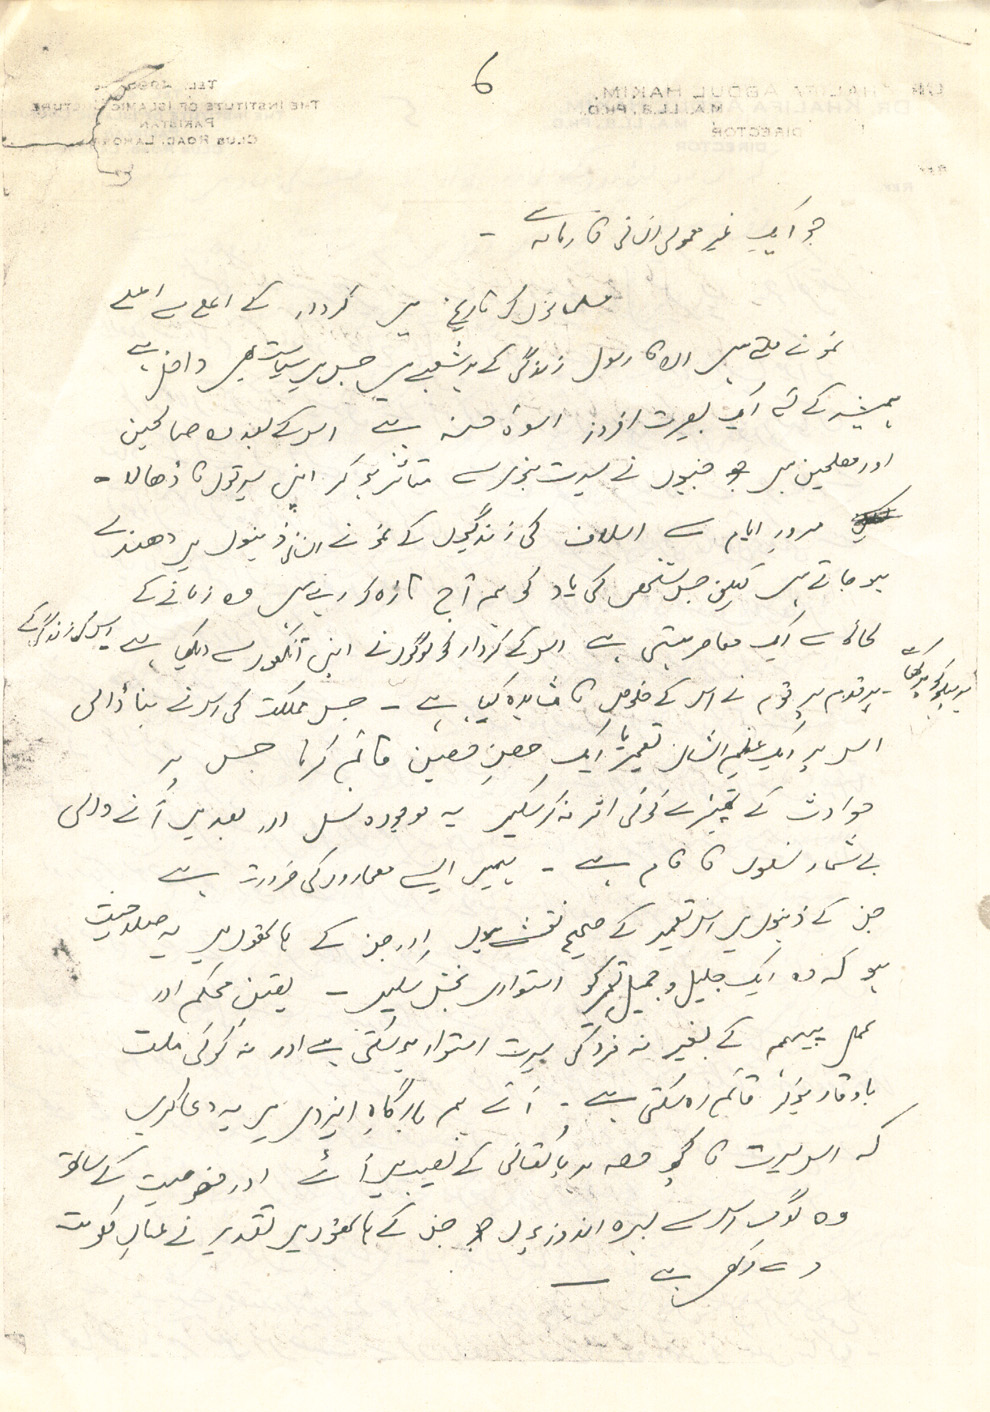 6
جو ایک غیر معمولی انسانی کارنامہ ہے -
مسلمانوں کی تاریخ میں کردار کے اعلیٰ سے اعلےٰ
نمونے ملتے ہیں ان کا رسول زندگی کے ہر شعبے میں جس میں سیاست بھی داخل ہے
ہمیشہ کے لئے ایک بصیرت افروز اسوۂ حسنہ ہے اس کے بعد وہ صالحین
اور مصلحین ہیں جنہوں نے سیرت نبوی سے متاثر ہو کر اپنی سیرتوں کو ڈھالا -
مرور ایام سے اسلاف کی زندگیوں کے نمونے انسانی ذہنوں میں دھندلے
ہو جاتے ہیں لیکن جس شخص کی یاد کو ہم آج تازہ کر رہے ہیں وہ زمانے کے
لحاظ سے ایک معاصر ہستی ہے اس کے کردار کو لوگوں نے اپنی آنکھوں سے دیکھا ہے اس کی زندگی کے
ہر پہلو کو پرکھا ہے
- ہر قدم پر قوم نے اس کے خلوص کا مشاہدہ کیا ہے - جس مملکت کی اس نے بنا ڈالی
اس پر ایک عظیم الشان تعمیر یا ایک حصن حصین قائم کرنا جس پر
حوادث کے تھپیڑے کوئی اثر نہ کر سکیں یہ موجودہ نسل اور بعد میں آنے والی
بے شمار نسلوں کا کام ہے - ہمیں ایسے معماروں کی ضرورت ہے
جن کے ذہنوں میں اس تعمیر کے صحیح نقشے ہوں اور جن کے ہاتھوں میں یہ صلاحیت
ہو کہ وہ ایک جلیل و جمیل تعمیر کو استواری بخش سکیں - یقین محکم اور
عمل پیہم کے بغیر نہ فرد کی سیرت استوار ہو سکتی ہے اور نہ کوئی ملت
باوقار ہو کر قائم رہ سکتی ہے - آئیے ہم بارگاہ ایزدی میں یہ دعا کریں
کہ اس سیرت کا کچھ حصہ ہر پاکستانی کے نصیب میں آئے اور خصوصیت کے ساتھ
وہ لوگ اس سے بہرہ اندوز ہوں جن کے ہاتھوں میں تقدیر نے عنان حکومت
دے رکھی ہے -